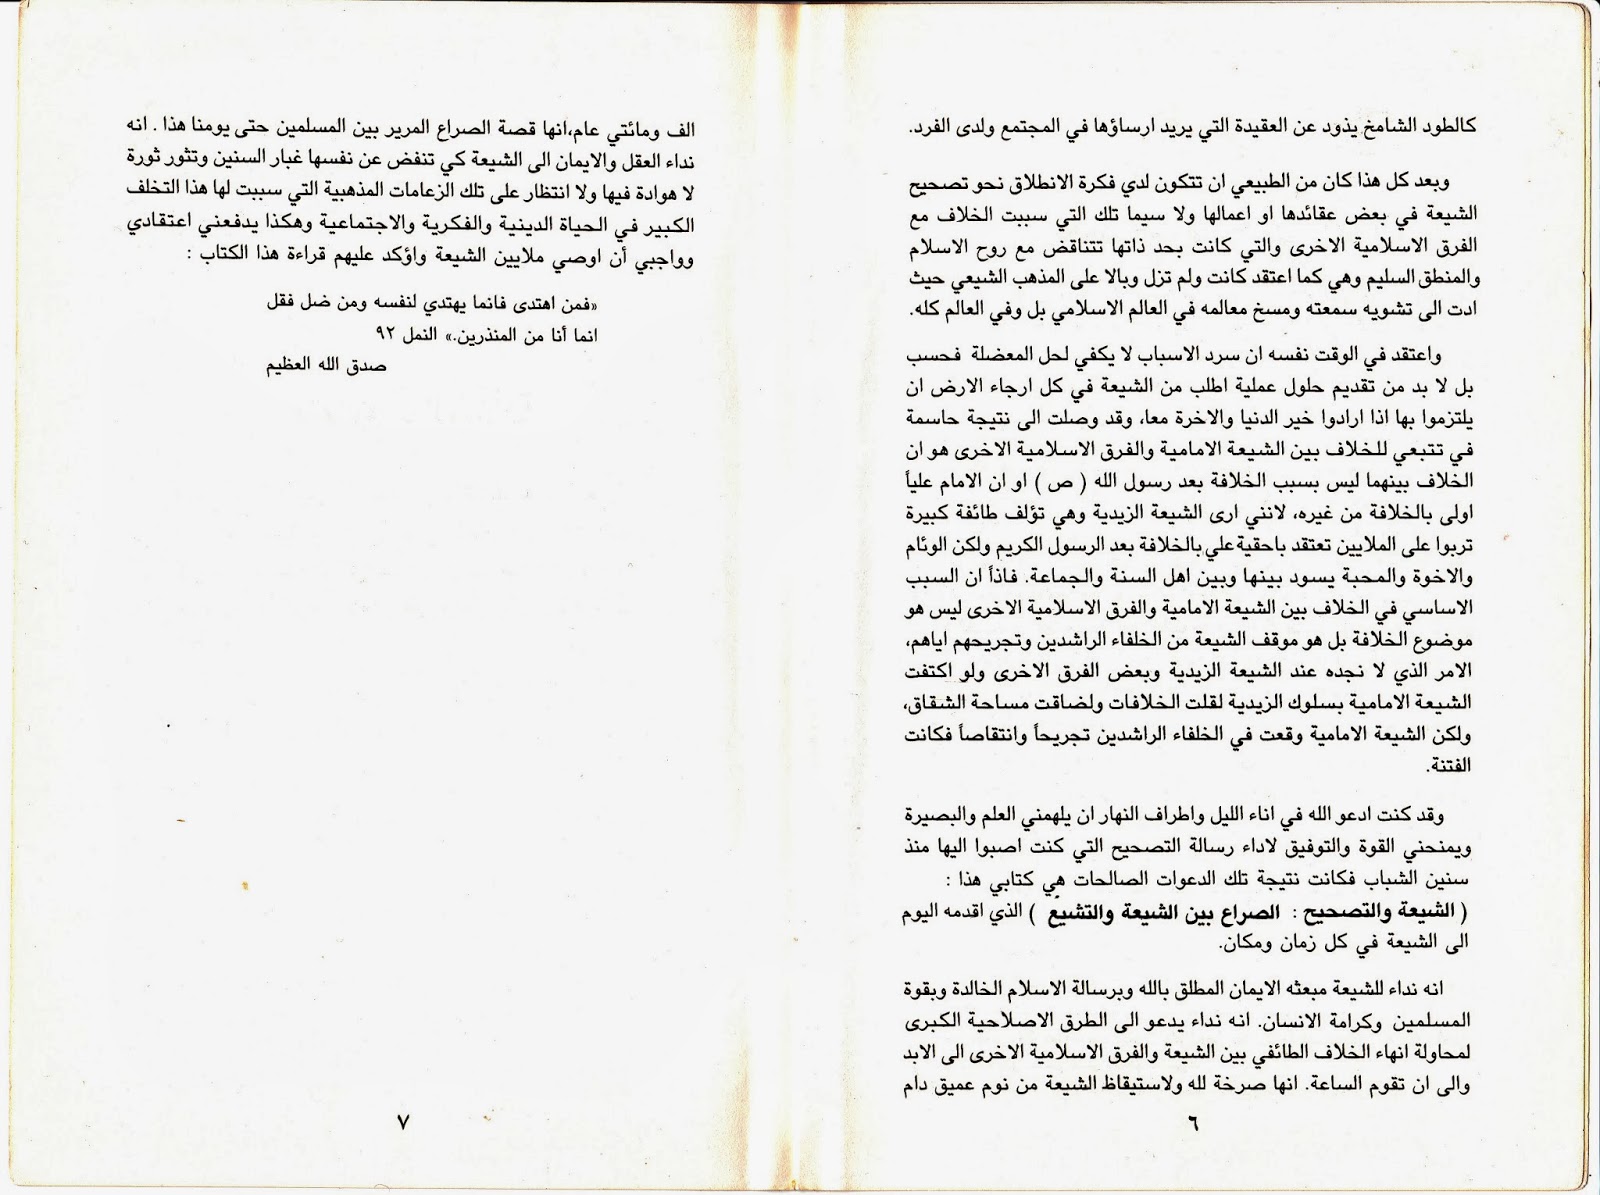 كالطود الشامخ يذود عن العقيدة التي يريد ارساؤها في المجتمع ولدى الفرد.
وبعد كل هذا كان من الطبيعي ان تتكون لدي فكرة الانطلاق نحو تصحيح
الشيعة في بعض عقائدها او اعمالها ولا سيما تلك التي سببت الخلاف مع
الفرق الاسلامية الاخرى والتي كانت بحد ذاتها تتناقض مع روح الاسلام
والمنطق السليم وهي كما اعتقد كانت ولم تزل وبالا على المذهب الشيعي حيث
ادت الى تشويه سمعته ومسخ معالمه في العالم الاسلامي بل وفي العالم كله.
واعتقد في الوقت نفسه ان سرد الاسباب لا يكفي لحل المعضلة فحسب
بل لا بد من تقديم حلول عملية اطلب من الشيعة في كل ارجاء الارض ان
يلتزموا بها اذا ارادوا خير الدنيا والاخرة معا، وقد وصلت الى نتيجة حاسمة
في تتبعي للخلاف بين الشيعة الامامية والفرق الاسلامية الاخرى هو ان
الخلاف بينهما ليس بسبب الخلافة بعد رسول الله ( ص ) او ان الامام علياً
اولى بالخلافة من غيره، لانني ارى الشيعة الزيدية وهي تؤلف طائفة كبيرة
تربوا على الملايين تعتقد باحقية علي بالخلافة بعد الرسول الكريم ولكن الوئام
والاخوة والمحبة يسود بينها وبين اهل السنة والجماعة. فاذاً ان السبب
الاساسي في الخلاف بين الشيعة الامامية والفرق الاسلامية الاخرى ليس هو
موضوع الخلافة بل هو موقف الشيعة من الخلفاء الراشدين وتجريحهم اياهم،
الامر الذي لا نجده عند الشيعة الزيدية وبعض الفرق الاخرى ولو اكتفت
الشيعة الامامية بسلوك الزيدية لقلت الخلافات ولضاقت مساحة الشقاق،
ولكن الشيعة الامامية وقعت في الخلفاء الراشدين تجريحاً وانتقاصاً فكانت
الفتنة.
وقد كنت ادعو الله في اناء الليل واطراف النهار ان يلهمني العلم والبصيرة
ويمنحني القوة والتوفيق لاداء رسالة التصحيح التي كنت اصبوا اليها منذ
سنين الشباب فكانت نتيجة تلك الدعوات الصالحات هي كتابي هذا :
( الشيعة والتصحيح : الصراع بين الشيعة والتشيع ) الذي اقدمه اليوم
الى الشيعة في كل زمان ومكان.
انه نداء للشيعة مبعثه الايمان المطلق بالله وبرسالة الاسلام الخالدة وبقوة
المسلمين وكرامة الانسان. انه نداء يدعو الى الطرق الاصلاحية الكبرى
لمحاولة انهاء الخلاف الطائفي بين الشيعة والفرق الاسلامية الاخرى الى الابد
والى ان تقوم الساعة. انها صرخة لله ولاستيقاظ الشيعة من نوم عميق دام
٦
الف ومائتي عام،انها قصة الصراع المرير بين المسلمين حتى يومنا هذا . انه
نداء العقل والايمان الى الشيعة كي تنفض عن نفسها غبار السنين وتثور ثورة
لا هوادة فيها ولا انتظار على تلك الزعامات المذهبية التي سببت لها هذا التخلف
الكبير في الحياة الدينية والفكرية والاجتماعية وهكذا يدفعني اعتقادي
وواجبي أن اوصي ملايين الشيعة واؤكد عليهم قراءة هذا الكتاب :
«فمن اهتدى فانما يهتدي لنفسه ومن ضل فقل
انما أنا من المنذرين.» النمل ٩٢
صدق الله العظيم
٧